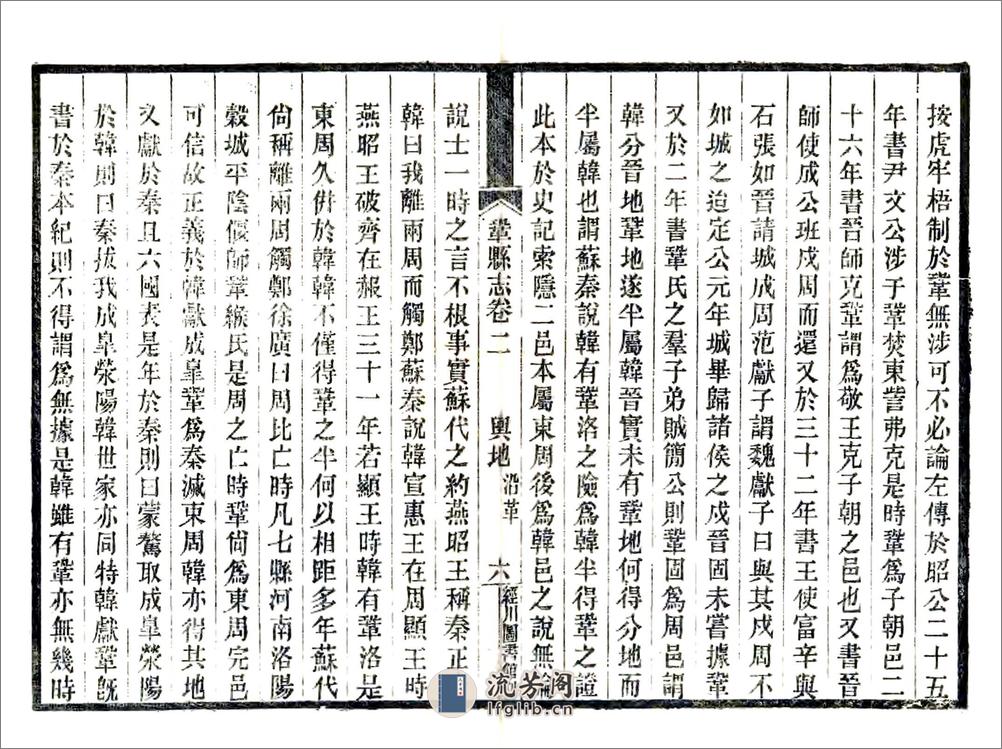 按虎牢梧制於鞏無涉可不必論左傳於昭公二十五
年書尹文公涉于鞏焚東訾弗克是時鞏爲子朝邑二
十六年書晉師克鞏謂爲敬王克子朝之邑也又書晉
師使成公班戍周而還又於三十二年書王使富辛與
石張如晉請城成周范獻子謂魏獻子曰與其戍周不
如城之迨定公元年城畢歸諸侯之戍晉固未嘗據鞏
又於二年書鞏氏之羣子弟賊簡公則鞏固爲周邑謂
韓分晉地鞏地遂半屬韓晉實未有鞏地何得分地而
半屬韓也謂蘇秦說韓有鞏洛之險爲韓半得鞏之證
此本於史記索隱二邑本屬東周後爲韓邑之說無論
鞏縣志卷二 輿地 沿革 六 經川圖書館
說士一時之言不根事實蘇代之約燕昭王稱秦正告
韓曰我離兩周而觸鄭蘇秦說韓宣惠王在周顯王時
燕昭王破齊在赧王三十一年若顯王時韓有鞏洛是
東周久併於韓韓不僅得鞏之半何以相距多年蘇代
尙稱離兩周觸鄭徐廣曰周比亡時凡七縣河南洛陽
穀城平陰偃師鞏緱氏是周之亡時鞏尙爲東周完邑
可信故正義於韓獻成皐鞏爲秦滅東周韓亦得其地
又獻於秦且六國表是年於秦則曰蒙驁取成皐滎陽
於韓則曰秦拔我成皐滎陽韓世家亦同特韓獻鞏旣
書於秦本紀則不得謂爲無據是韓雖有鞏亦無幾時
流芳阁
lfglib.cn